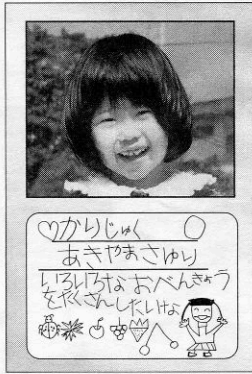 ♡かりじゅく
あきやまさゆり
いろいろなおべんきょう
をたくさんしたいけよ